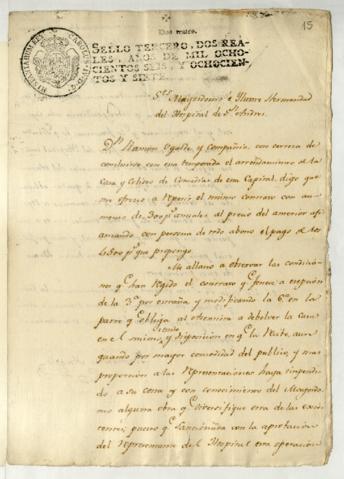 15
Dos reales.
SELLO TERCERO, DOS REA-
LES, AÑOS DE MIL OCHO-
CIENTOS SEIS, Y OCHOCIEN-
TOS Y SIETE.
Mayordomo e Ilustre Hermandad
del Hospital de Sn Andres.
Dn Ramon y Compañia, con
concluirse con esta temporada el arrendamiento de la
Casa y Coliseo de Comedias de esta Capital, digo que
me ofrezco à repetir el mismo contrato con au-
mento de 300 ps anuales al precio del anterior afi-
anzando con persona de todo abono el pago de los
ps que propongo.
Me allano à observar las condicio-
nes qe han regido el contrato y qe à excepcion
de la 3a por y modificando la 6a en la
parte qe obliga al a debolver la Casa
en el mismo estado, y disposicion en qe la recibe, aun
quando por mayor comodidad del publico, y mas
proporcion à las representaciones haya
do à su costa y con conocimiento del Mayordo-
mo alguna obra qe diversifique
pues qe sancionada con la aprobacion
del representante del Hospital esta operacion